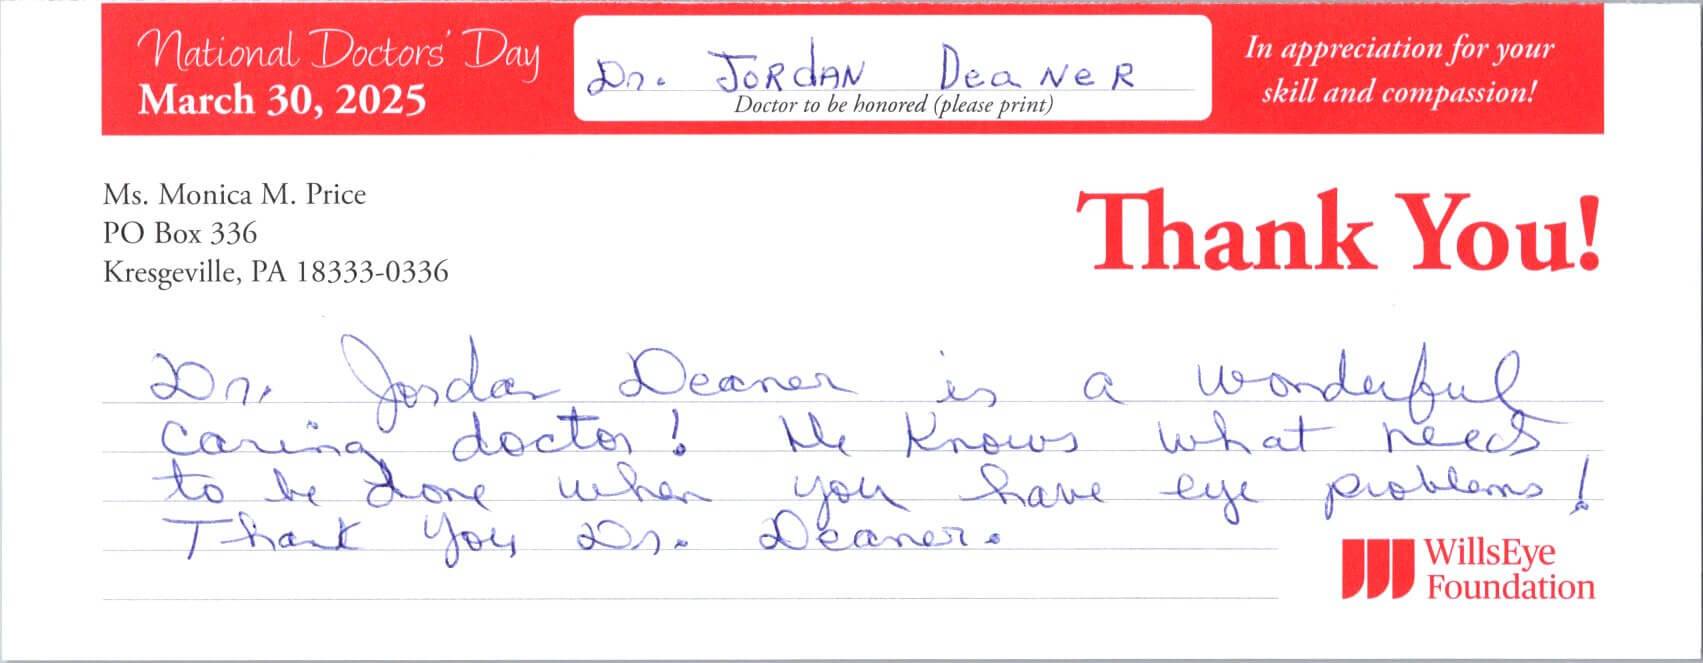 National Doctors' Day
March 30, 2025
Dr. JORdAN DeaNeR
Doctor to be honored (please print)
In appreciation for your
skill and compassion!
Ms. Monica M. Price
PO Box 336
Kresgeville, PA 18333-0336
Thank You!
Dr. Jordan Deaner is a wonderful
caring doctor! He Knows what needs
to be done when you have eye problems!
Thank You Dr. Deaner.
WillsEye
Foundation